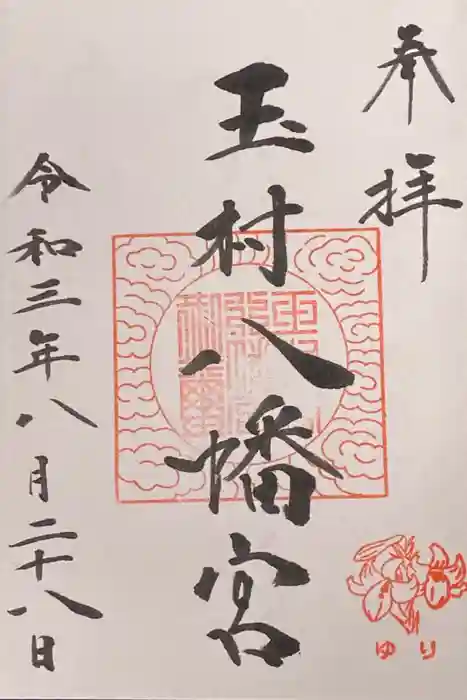 奉拝
玉村八幡宮
令和三年八月二十八日
ゆり